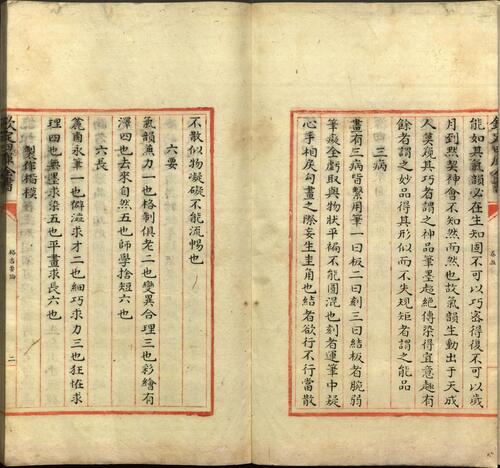 欽定四庫全書
能如其氣韻必在生知固不可以巧密得復不可以歲
月到黙契神會不知然而然也故氣韻生動出于天成
人莫窺其巧者謂之神品筆墨超絶傳染得宜意趣有
餘者謂之妙品得其形似而不失規矩者謂之能品
三病
畫有三病皆繫用筆一曰板二曰刻三曰結板者腕弱
筆癡全虧取與物狀平褊不能圓混也刻者運筆中疑
心手相戾勾畫之際妄生圭角也結者欲行不行當散
不散似物凝礙不能流暢也
六要
氣韻兼力一也格制俱老二也變異合理三也彩繪有
澤四也去來自然五也師學捨短六也
六長
麄鹵求筆一也僻澁求才二也細巧求力三也狂怪求
理四也無墨求染五也平畫求長六也
製作楷模
欽定四庫全書
格古要論
二